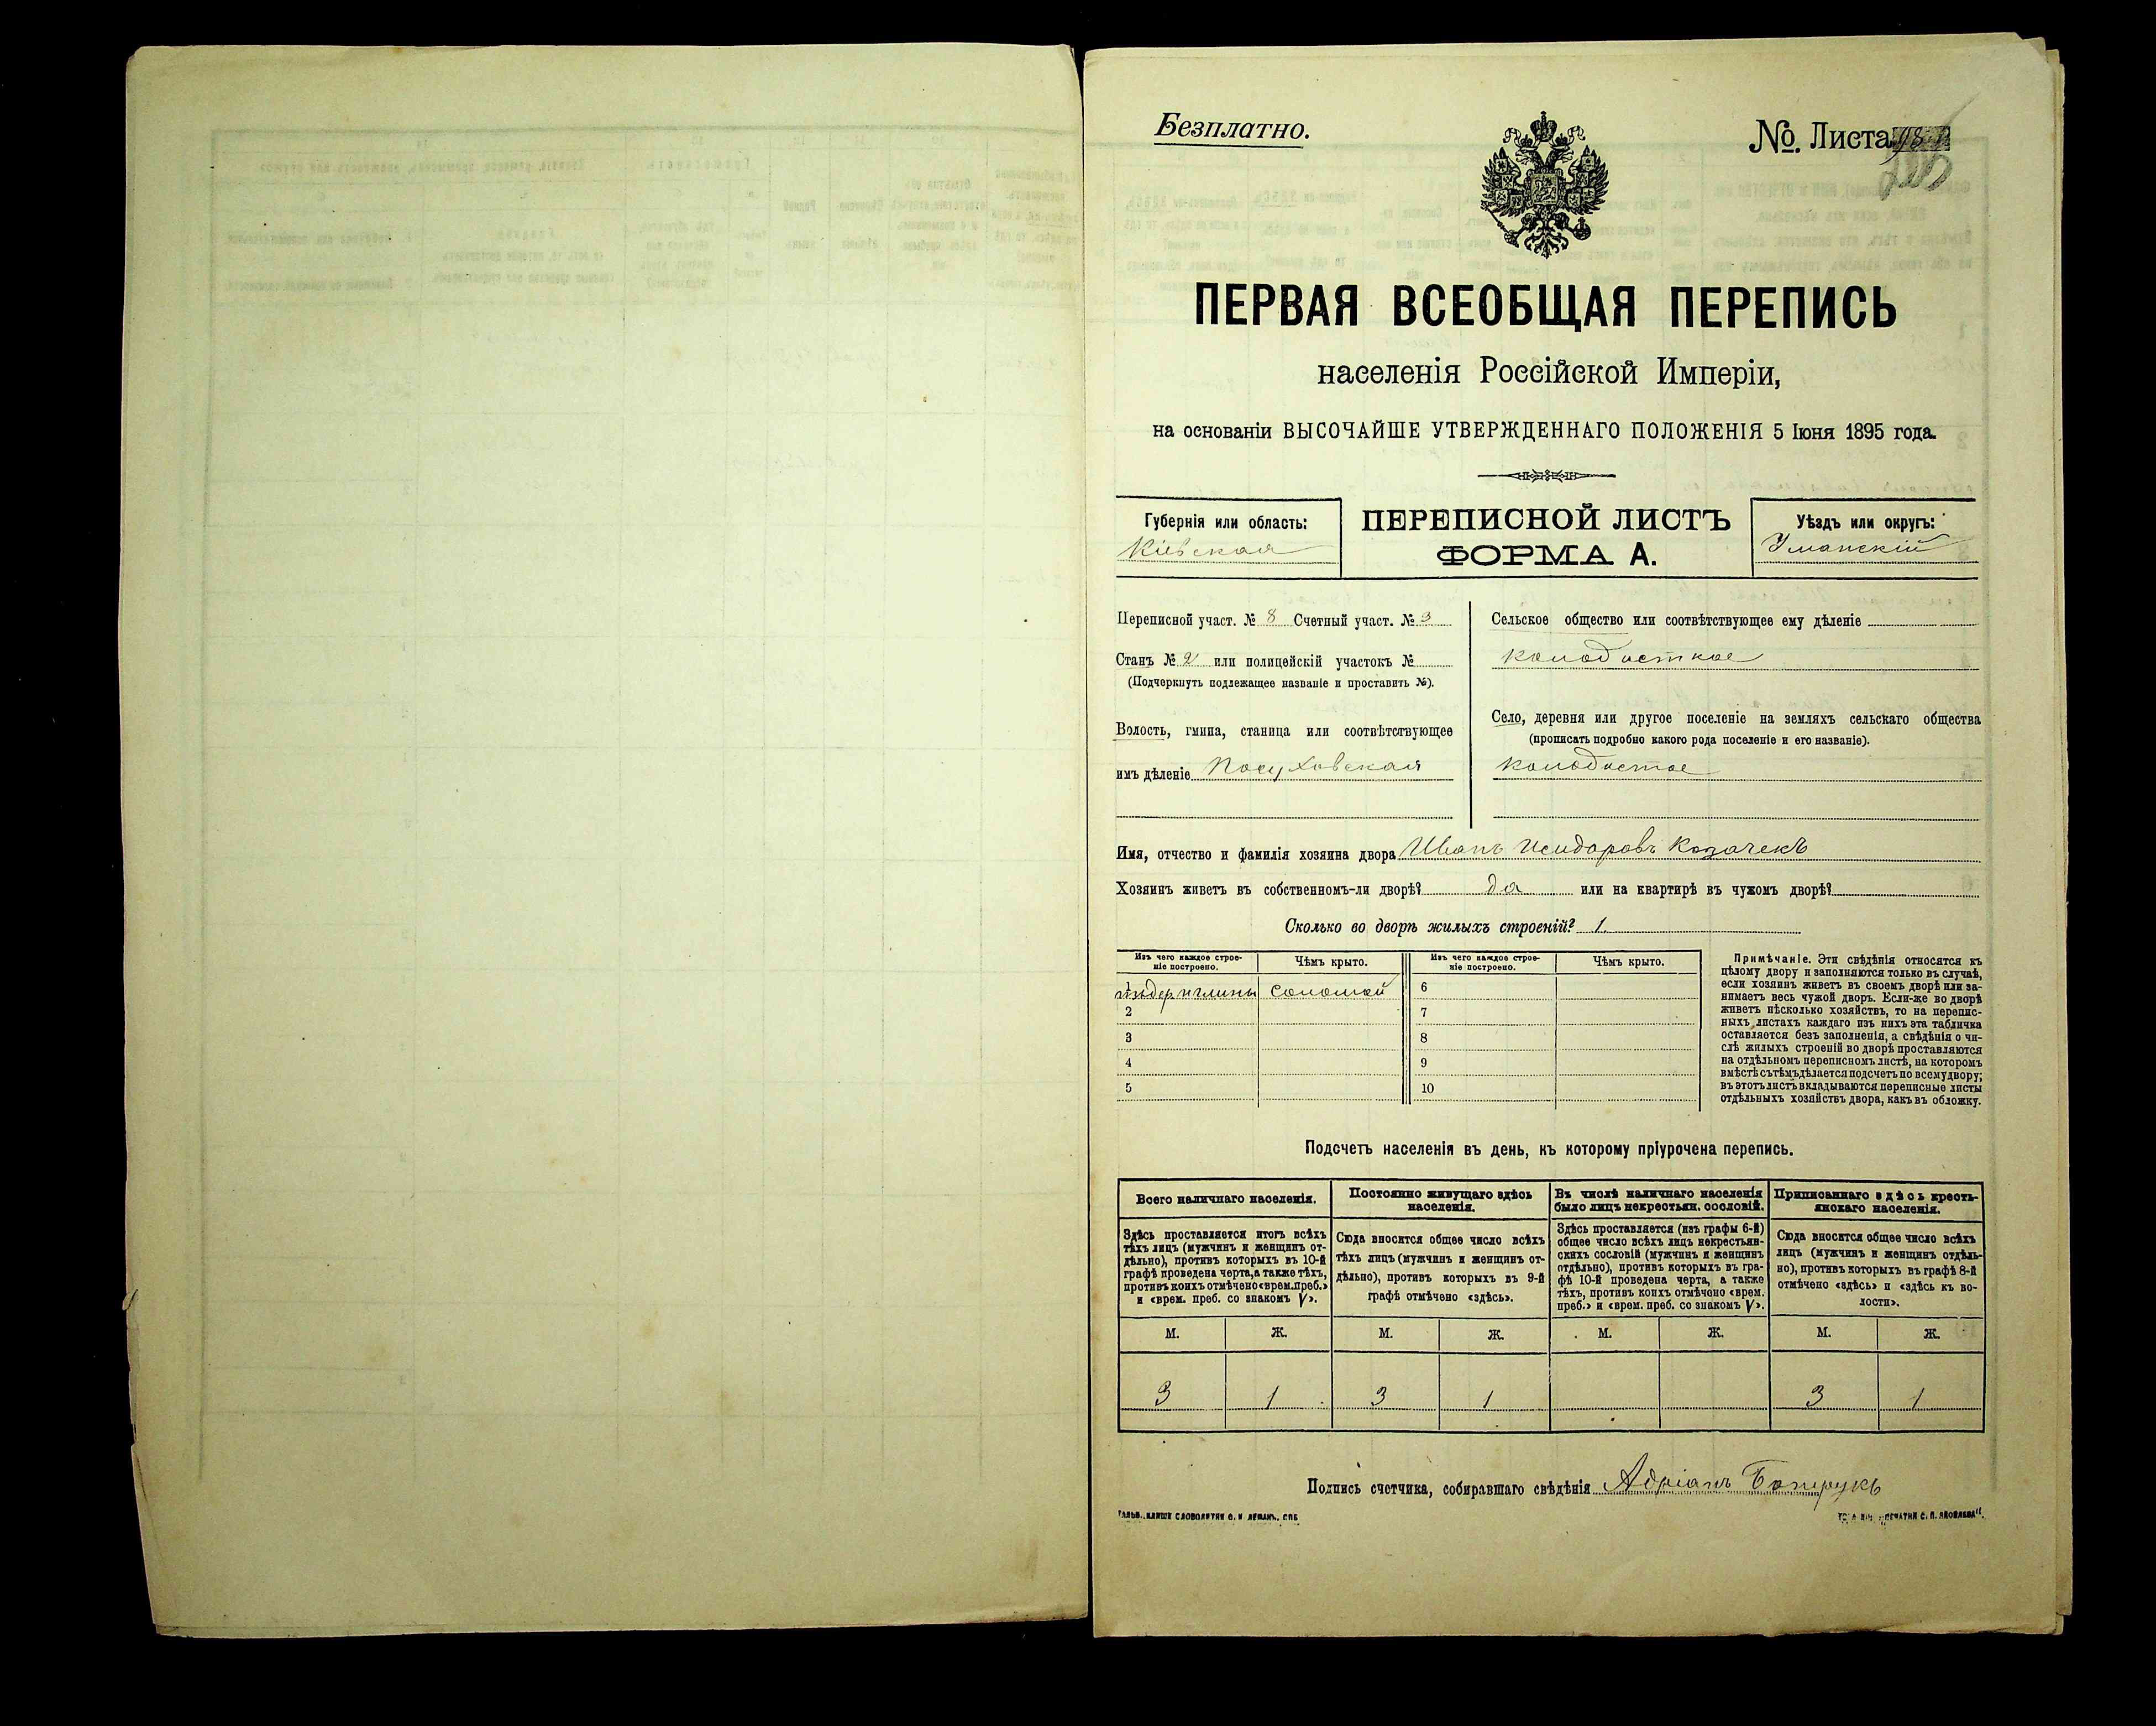 Безплатно.
№. Листа
ПЕРВАЯ ВСЕОБЩАЯ ПЕРЕПИСЬ
населенія Россійской Имперіи,
на основаніи ВЫСОЧАЙШЕ УТВЕРЖДЕННАГО ПОЛОЖЕНІЯ 5 Іюня 1895 года.
Губернія или область:
Кіевская
ПЕРЕПИСНОЙ ЛИСТЪ
ФОРМА А.
Уѣздъ или округъ:
Уманскій
Переписной участ. № 8 Счетный участ. № 3
Станъ № 2 или полицейскій участокъ №
(Подчеркнуть подлежащее названіе и проставить №).
Волость, гмина, станица или соотвѣтствующее
имъ дѣленіе Посуховская
Сельское общество или соотвѣтствующее ему дѣленіе
Колодисткое
Село, деревня или другое поселеніе на земляхъ сельскаго общества
(прописать подробно какого рода поселеніе и его названіе).
Колодистое
Имя, отчество и фамилія хозяина двора Иванъ Исидоровъ Козачекъ
Хозяинъ живетъ въ собственномъ-ли дворѣ? да или на квартирѣ въ чужомъ дворѣ?
Сколько во дворѣ жилыхъ строеній? 1.
Изъ чего каждое строе-
ніе построено.
Чѣмъ крыто.
Изъ чего каждое строе-
ніе построено.
Чѣмъ крыто.
1 изъ дер. и глины соломой 6
2 7
3 8
4 9
5 10
Примѣчаніе. Эти свѣдѣнія относятся къ
цѣлому двору и заполняются только въ случаѣ,
если хозяинъ живетъ въ своемъ дворѣ или за-
нимаетъ весь чужой дворъ. Если-же во дворѣ
живетъ нѣсколько хозяйствъ, то на перепис-
ныхъ листахъ каждаго изъ нихъ эта табличка
оставляется безъ заполненія, а свѣдѣнія о чи-
слѣ жилыхъ строеній во дворѣ проставляются
на отдѣльномъ переписномъ листѣ, на которомъ
вмѣстѣ съ тѣмъ дѣлается подсчетъ по всему двору;
въ этотъ листъ вкладываются переписные листы
отдѣльныхъ хозяйствъ двора, какъ въ обложку.
Подсчетъ населенія въ день, къ которому пріурочена перепись.
Всего наличнаго населенія.
Здѣсь проставляется итогъ всѣхъ
тѣхъ лицъ (мужчинъ и женщинъ от-
дѣльно), противъ которыхъ въ 10-й
графѣ проведена черта, а также тѣхъ,
противъ коихъ отмѣчено «врем. преб.»
и «врем. преб. со знакомъ V».
Постоянно живущаго здѣсь
населенія.
Сюда вносится общее число всѣхъ
тѣхъ лицъ (мужчинъ и женщинъ от-
дѣльно), противъ которыхъ въ 9-й
графѣ отмѣчено «здѣсь».
Въ числѣ наличнаго населенія
было лицъ некрестьян. сословій.
Здѣсь проставляется (изъ графы 6-й)
общее число всѣхъ лицъ некрестьян-
скихъ сословій (мужчинъ и женщинъ
отдѣльно), противъ которыхъ въ гра-
фѣ 10-й проведена черта, а также
тѣхъ, противъ коихъ отмѣчено «врем.
преб.» и «врем. преб. со знакомъ V».
Приписаннаго здѣсь кресть-
янскаго населенія.
Сюда вносится общее число всѣхъ
лицъ (мужчинъ и женщинъ отдѣль-
но), противъ которыхъ въ графѣ 8-й
отмѣчено «здѣсь» и «здѣсь къ во-
лости».
М. Ж. М. Ж. М. Ж. М. Ж.
3 1 3 1 3 1
Подпись счетчика, собиравшаго свѣдѣнія Адріанъ